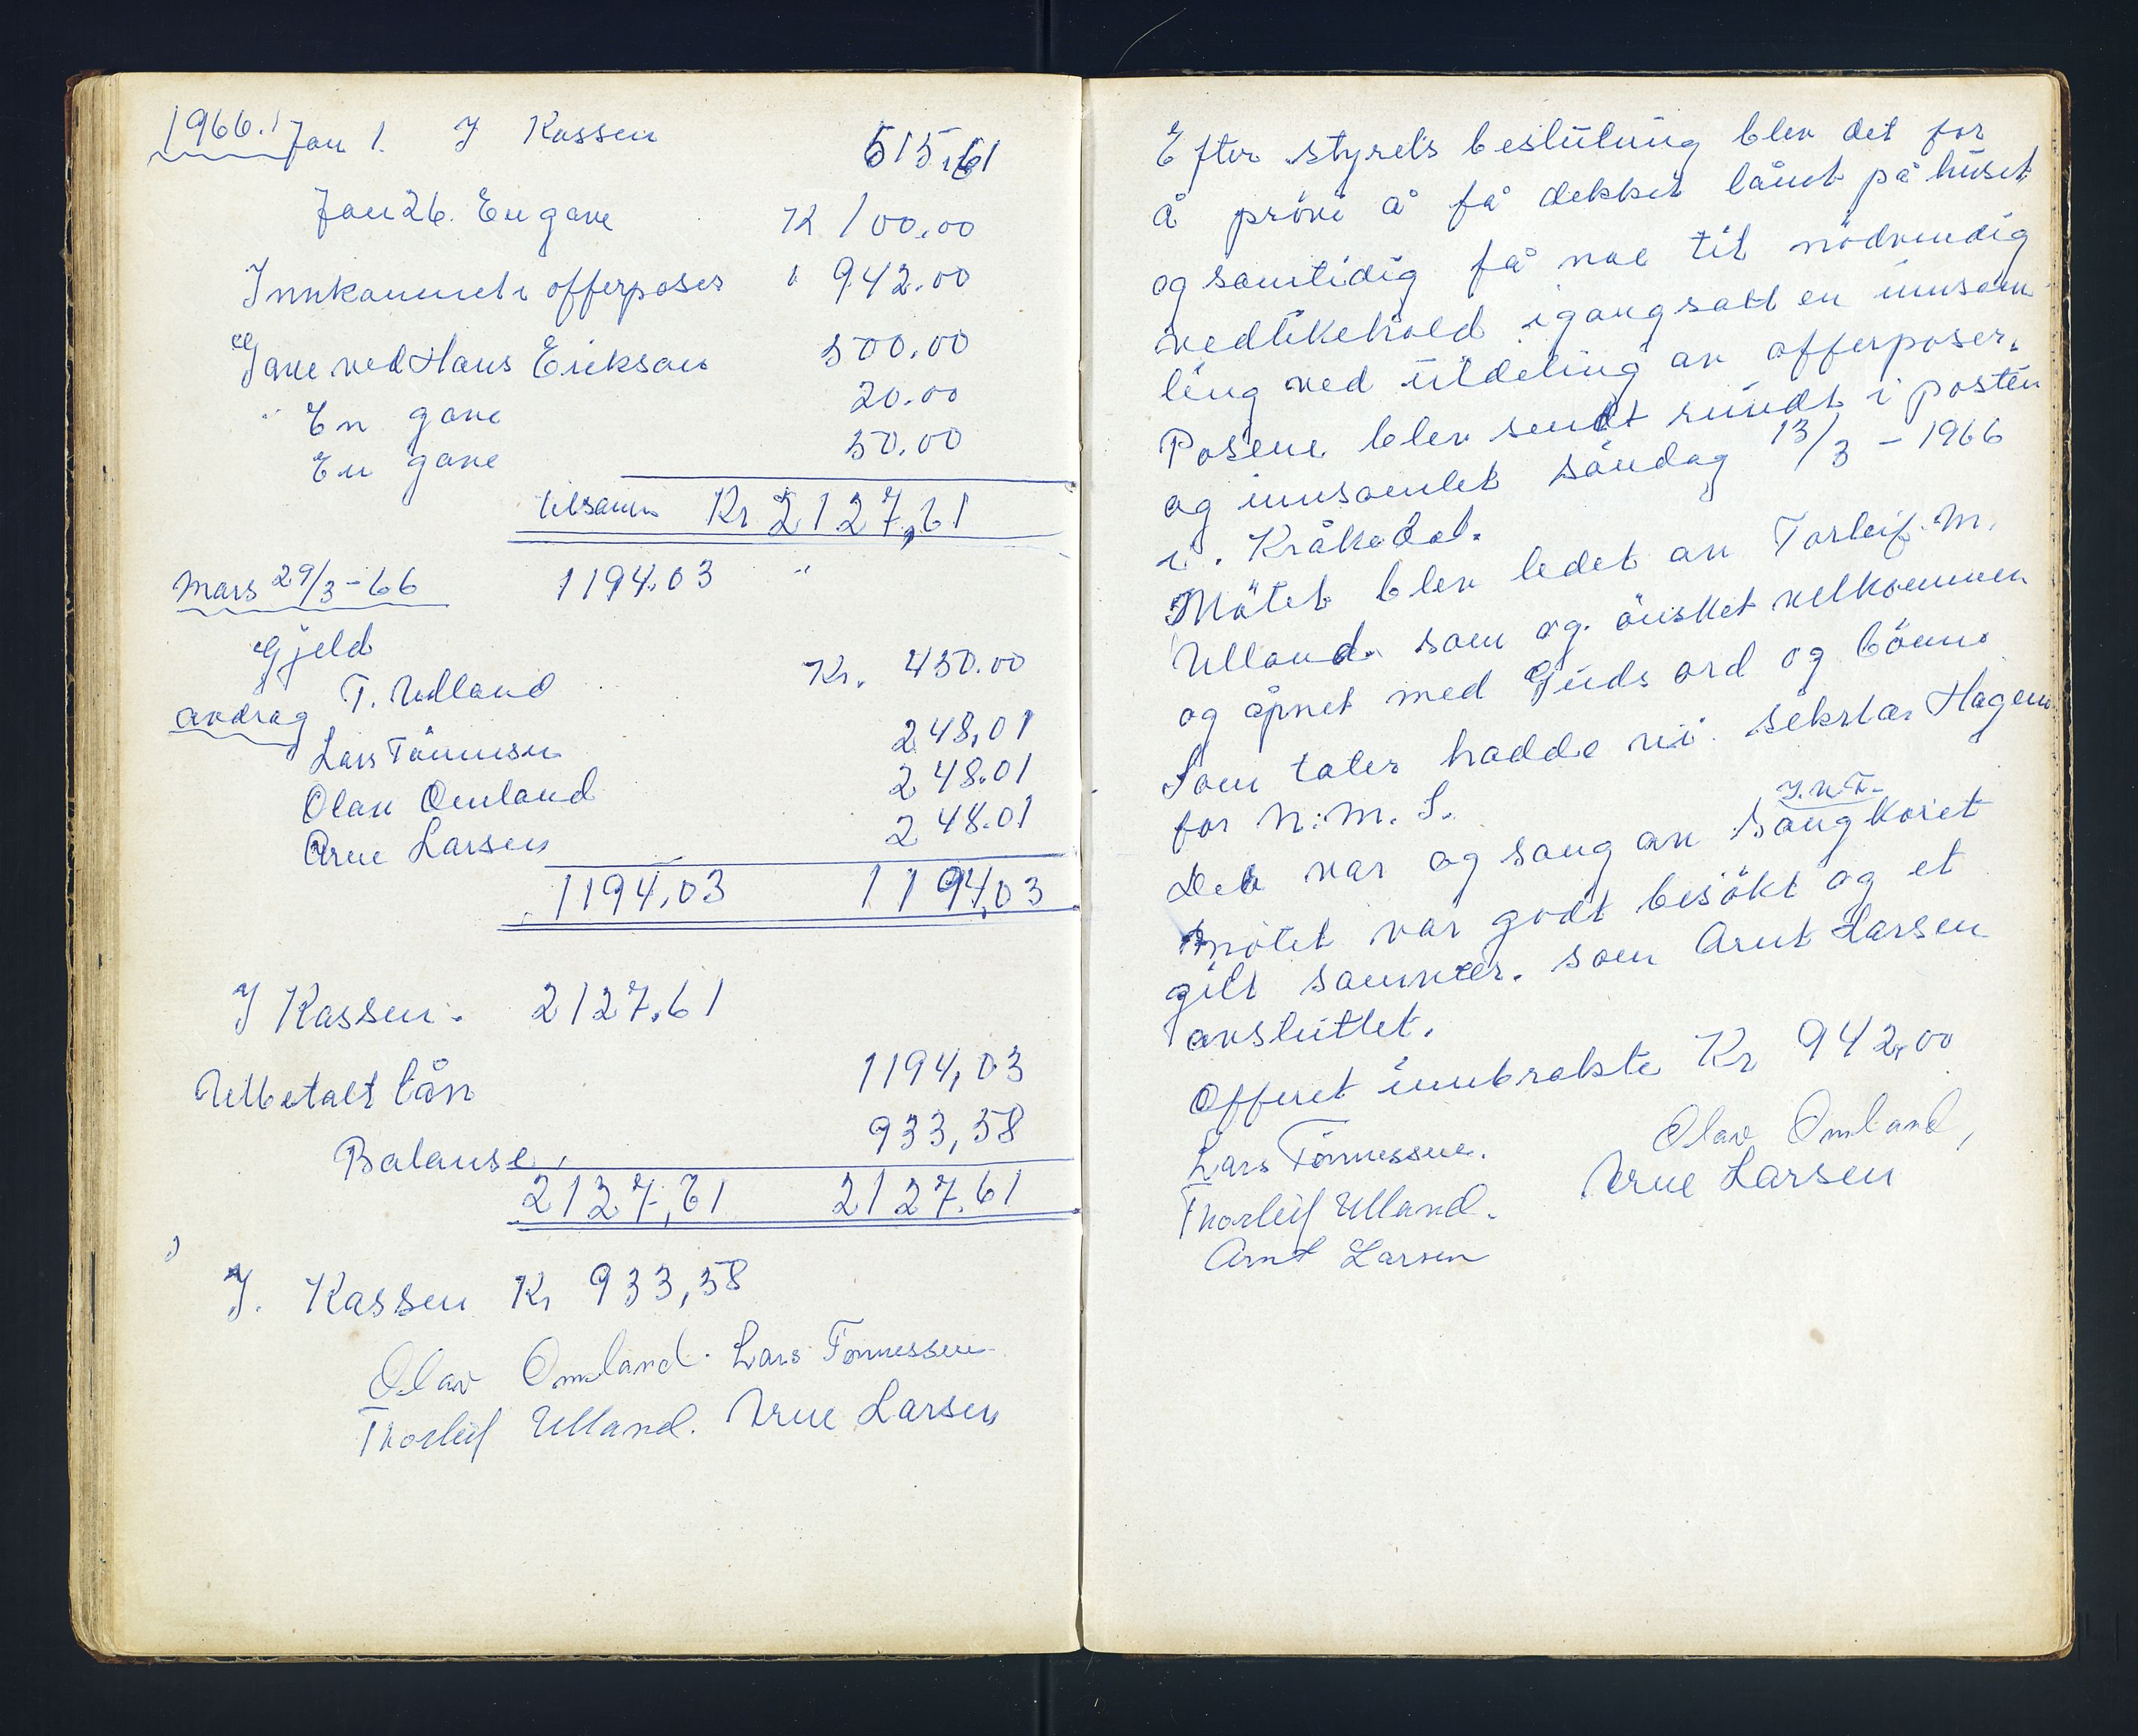 1966. Jan 1. I Kassen 515,61
Jan 26. En gave Kr 100.00
Innkommet i offerposer " 942.00
Gave ved Hans Erikson 500.00
" En gave 20.00
En gave 50.00
tilsam Kr 2127,61
Mars 29/3-66 1194.03 "
Gjeld
T. Udland Kr. 450.00
avdrag
Lars Tönnesen 248,01
Olav Omland 248.01
Arne Larsen 248.01
1194,03 1194,03
I Kassen. 2127.61
Utbetalt lån 1194,03
Balanse, 933,58
2127,61 2127.61
I. Kassen Kr 933,58
Olav Omland. Lars Tönnessen
Thorleif Ulland. Arne Larsen
Efter styrets beslutning blev det for
å pröve å få dekket lånet på huset
og samtidig få noe til nödvendig
vedlikehold igangsatt en innsam
ling ved utdeling av offerposer.
Posene blev sendt rundt i posten
og innsamlet söndag 13/3 - 1966
i. Kråkedal.
Mötet blev ledet av Torleif. M.
Ulland. som og. önsket velkommen
og åpnet med Guds ord og bönn.
Som taler hadde vi. sekretær Hagen
for N.M.S.
I.N.F.
Det var og sang av Sangkoret
mötet var godt besökt og et
gilt samvær. som Arnt Larsen
avsluttet.
Offeret innbrakte Kr 942,00
Lars Tönnessen. Olav Omland,
Thorleif Ulland. Arne Larsen
Arnt Larsen